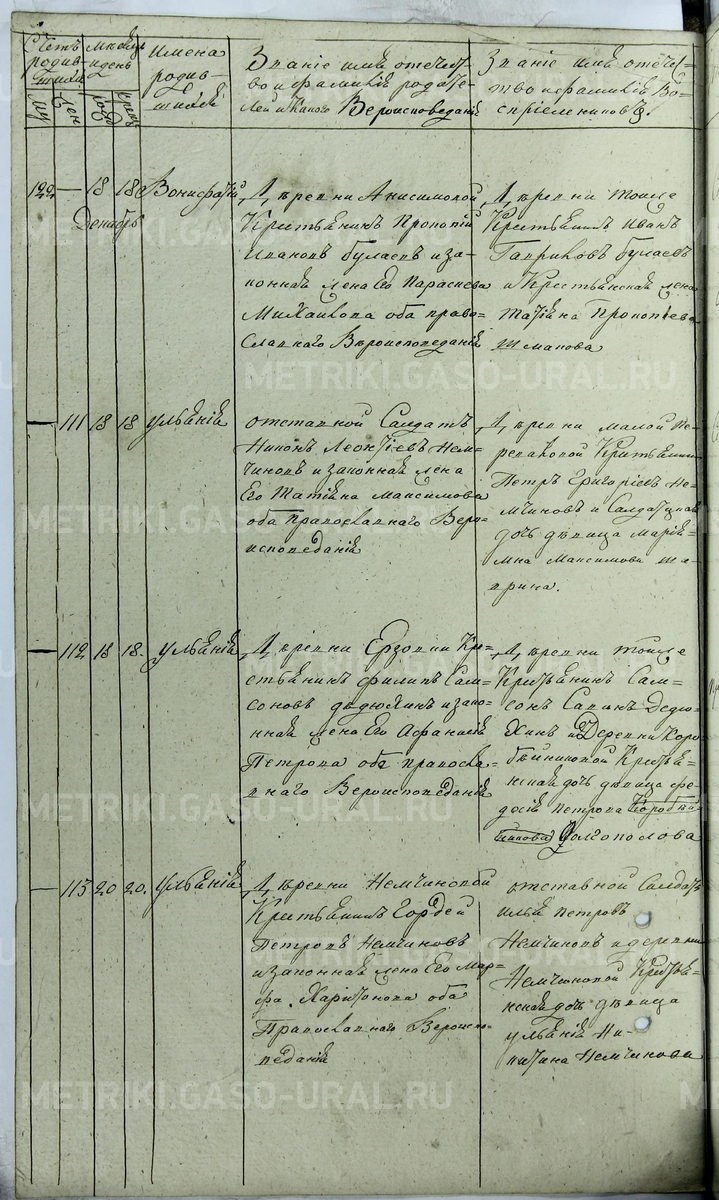 Счетъ родив-шихся
муж
жен
месяцъ и день
рожд
крещ
Имена родив-шихся
Званiе имя отечест-
во и фамилiя родите-
лей и какого Вероисповеданiя
Званiе имя отечес-
тво и фамилiя Во-
спрiемниковъ.
122 — 18 18 Вонифатiй
Декабрь
Деревни Анисимовой
Крестьянинъ Прокопiй
Ивановъ булаевъ и за-
конная жена Его Параскева
Михаилова оба право-
славнаго Вероисповеданiя
Деревни тойже
Крестьянинъ Иванъ
Гавриловъ булаевъ
и Крестьянская жена
татiяна Прокопiева
— 111 18 18 ульянiя
отставной Салдатъ
Никонъ Леонтiевъ Нем-
чиновъ и законная жена
Его Татiяна Максимова
оба Православнаго Веро-
исповеданiя
Деревни малой
Крестьянинъ
Петръ Григорiевъ Не-
мчиновъ и Салдатская
дочь девица марiя-
мна Максимова
— 112 18 18. ульянiя
Деревни Ерзовки Кре-
стьянинъ филипъ Сам-
соновъ дедюхинъ и зако-
нная жена Его Афанасiя
Петрова оба правосла-
внаго Вероисповеданiя
Деревни тойже
Крестьянинъ Сам-
сонъ Савинъ Дедю-
хинъ и Деревни Коро-
бейниковой Крестья-
нская дочь девица фе-
досiя петрова Коробей-
никова Долгополова
— 113 20 20. ульянiя
Деревни Немчиновой
Крестьянинъ Гордей
Петровъ Немчиновъ
и законная жена Его Мар-
фа Харитонова оба
Православнаго Вероиспо-
веданiя
отставной Салдатъ
илья петровъ
Немчиновъ и деревни
Немчиновой Крестья-
нская дочь девица
ульянiя Ни-
китина Немчинова
METRIKI.GASO-URAL.RU